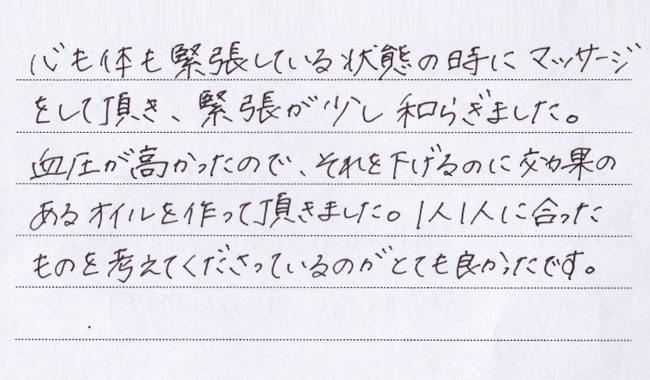 心も体も緊張している状態の時にマッサージ
をして頂き、緊張が少し和らぎました。
血圧が高かったので、それを下げるのに効果の
あるオイルを作って頂きました。1人1人に合った
ものを考えてくださっているのがとても良かったです。